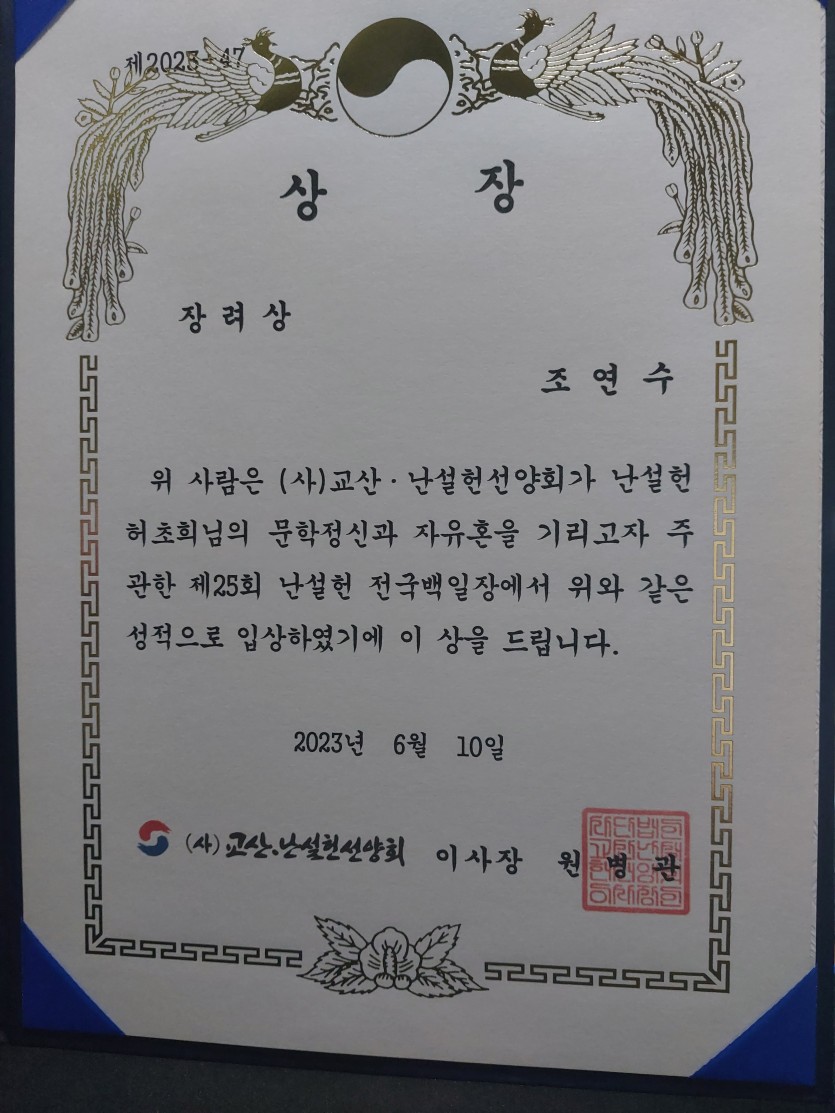 제2023-47
상 장
장려상
조연수
위 사람은 (사)교산·난설헌선양회가 난설헌
허초희님의 문학정신과 자유혼을 기리고자 주
관한 제25회 난설헌 전국백일장에서 위와 같은
성적으로 입상하였기에 이 상을 드립니다.
2023년 6월 10일
(사)교산·난설헌선양회 이사장 원병관